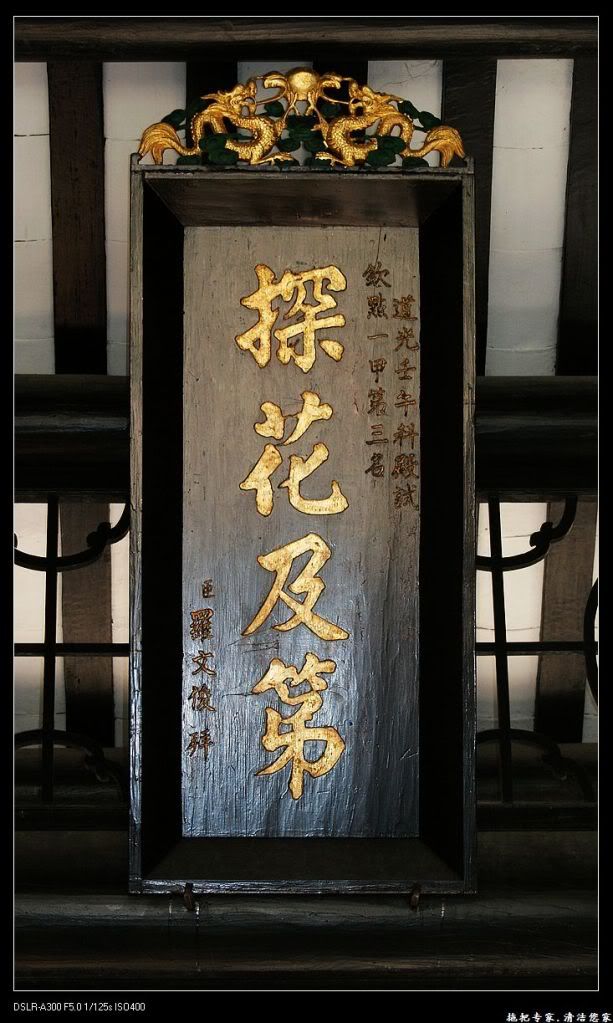 道光壬午科殿試
欽點一甲第三名
探花及第
臣羅文俊拜
DSLR-A300 F5.0 1/125s ISO400
拖把专家.清洁您家